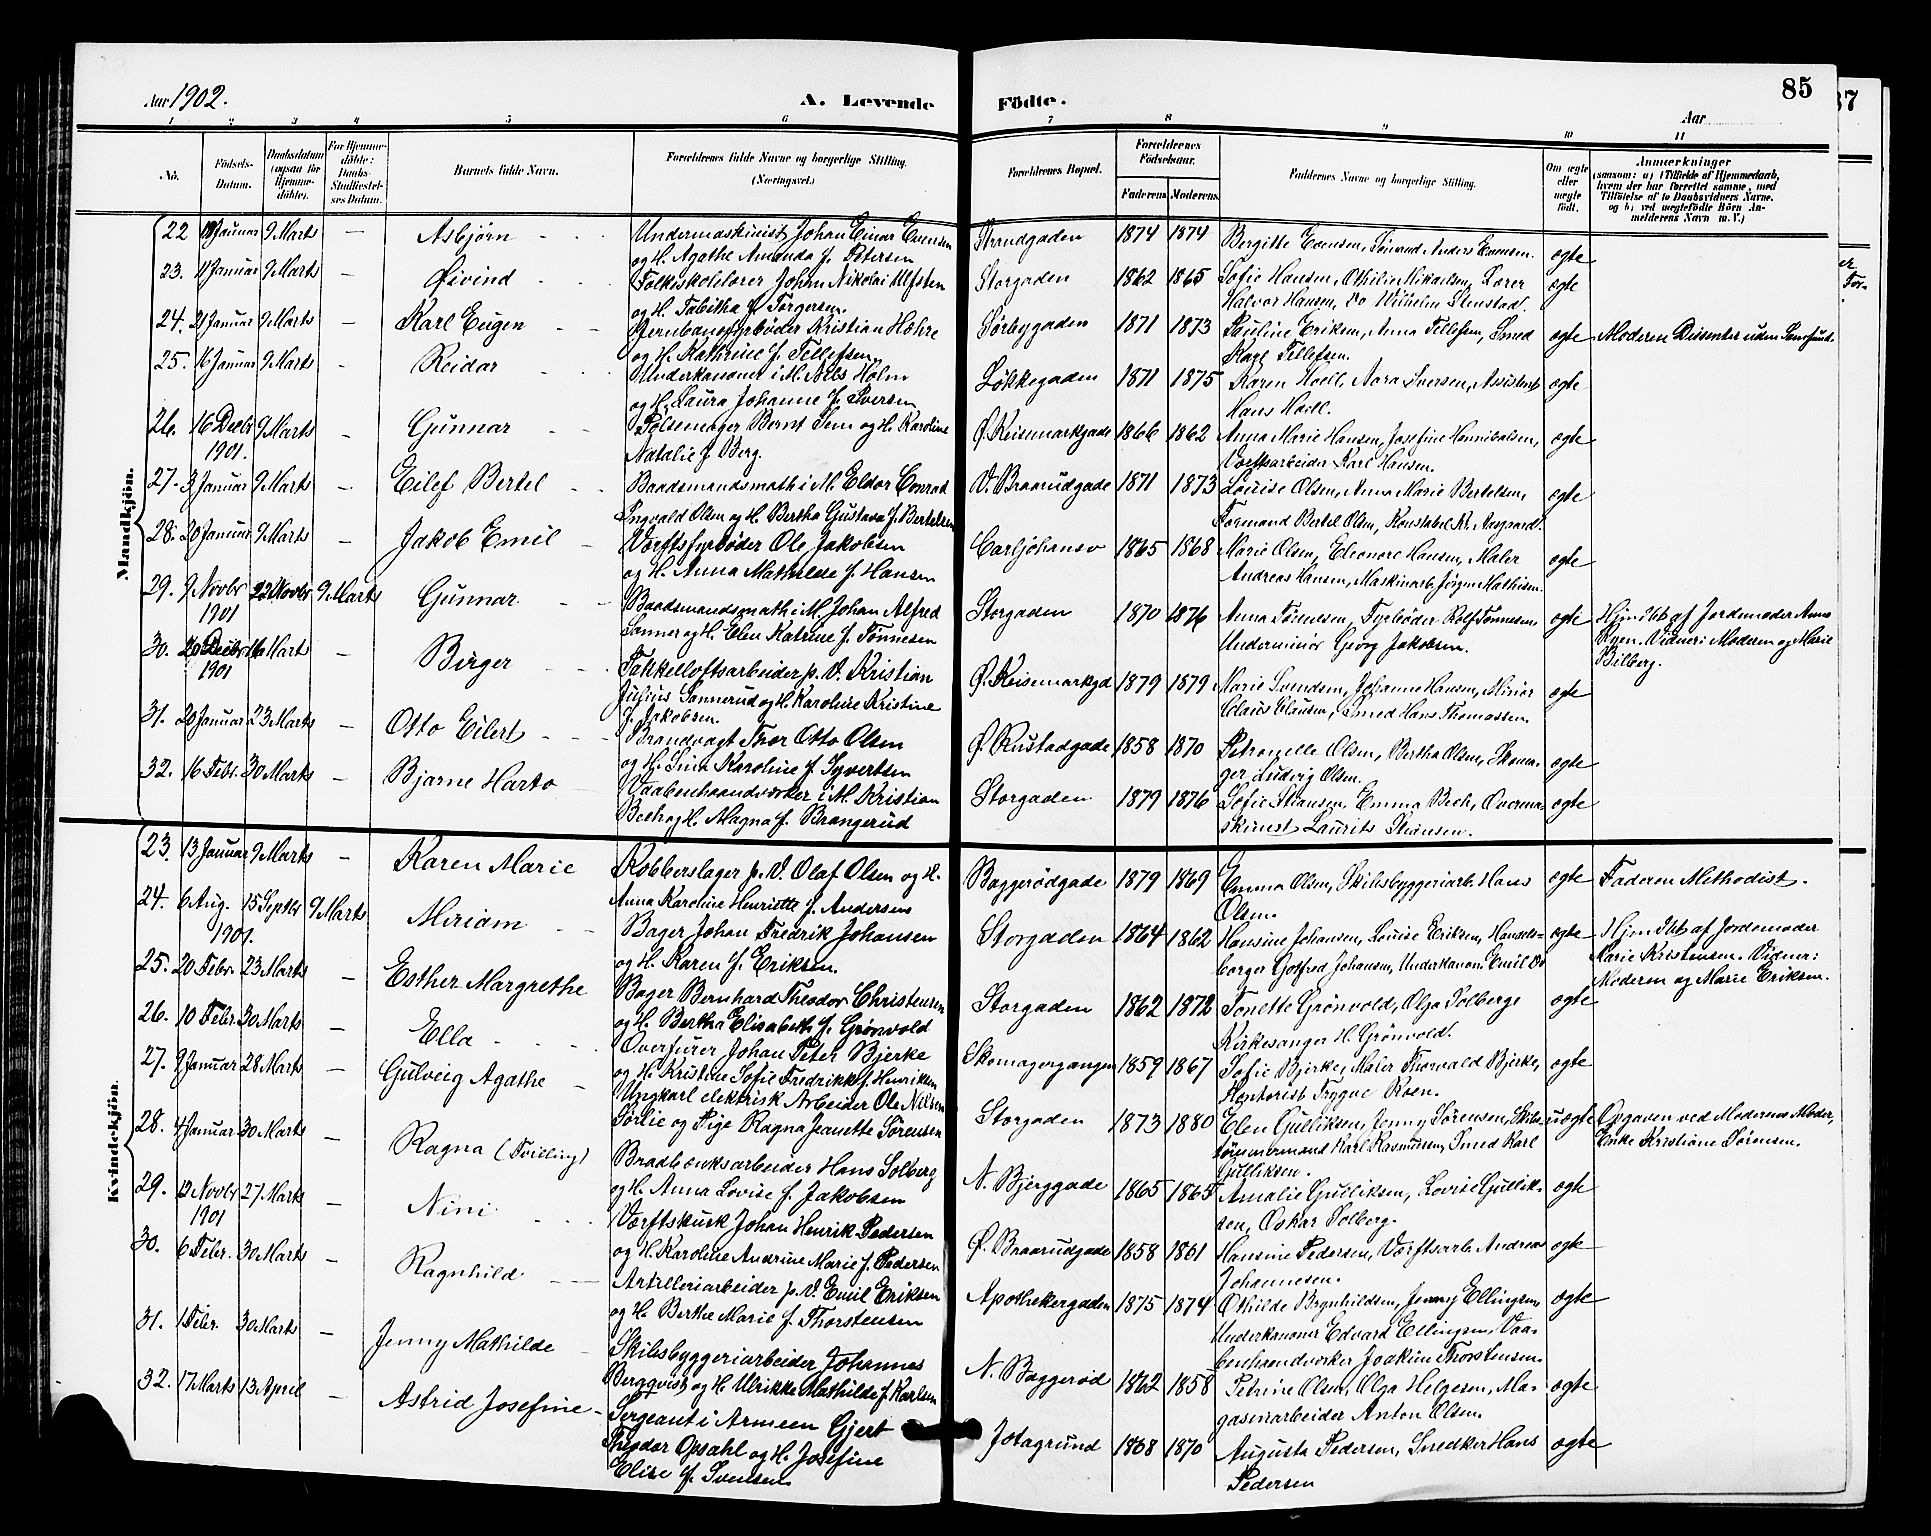 Aar 1902. A. Levende Födte. 85
Aar
1 2 3 4 5 6 7 8 9 10 11
No. Födsels-Datum. Daabsdatum (ogsaa for Hjemmedöbte). For Hjemmedöbte: Daabs-Stadfæstelses Datum. Barnets fulde Navn. Forældrenes fulde Navne og borgerlige Stilling. (Næringsvei.) Forældrenes Bopæl. Forældrenes Födselsaar. Faderens Moderens Faddernes Navne og borgerlige Stilling. Om ægte eller uægte födt. Anmærkninger (saasom: a) i Tilfælde af Hjemmedaab, hvem der har forrettet samme, med Tilföielse af to Daabsvidners Navne, og b) ved uægtefödte Börn Anmelderens Navn m. V.)
Mandkjön.
22 Januar 9 Marts — Asbjörn Undermaskinist Johan Einar Evensen Strandgaden 1874 1874 Bergitte Evensen, Sömand Anders Evensen. ægte
og H. Agathe Amanda f. Petersen
23. 11 Januar 9 Marts — Øivind Folkeskolelærer Johan Nikolai Ulfsten Storgaden 1862 1865 Sofie Hansen, Othilie Mikaelsen, Lærer ægte
og H. Tabitha f. Torgersen Halvor Hansen, Do Wilhelm Stenstad.
24. 21 Januar 9 Marts — Karl Eugen Jernbanefyrbøder Kristian Høhre Sørbygaden 1871 1873 Pauline Eriksen, Anna Tellefsen, Smed ægte Moderen Dissenter uden Samfund.
og H. Kathrine f. Tellefsen Karl Tellefsen.
25. 16 Januar 9 Marts — Reidar Underkanoner i M. Nils Holm Løkkegaden 1871 1875 Karen Hoell, Aara Iversen, Assistent ægte
og H. Laura Johanne f. Iversen Hans Hoell.
26. 16 Decbr 9 Marts — Gunnar Pølsemager Bernt Sem og H. Karoline Ø. Keisemarkgade 1866 1862 Anna Marie Hansen, Josefine Hannibalsen, ægte
1901. Natalie f. Berg. Værftsarbeider Karl Hansen.
27. 3 Januar 9 Marts — Eilef Bertel Baadsmandsmath i M. Eldor Conrad V. Braarudgade 1871 1873 Louise Olsen, Anna Marie Bertelsen, ægte
Ingvald Olsen og H. Bertha Gustava f. Bertelsen Formand Bertel Olsen, Konstabel Kr. Aasgaard.
28. 20 Januar 9 Marts — Jakob Emil Værftsfyrbøder Ole Jakobsen Carljohansv 1865 1868 Marie Olsen, Eleonore Hansen, Maler ægte
og H. Anna Mathilde f. Hansen Andreas Hansen, Maskinarb. Jørgen Mathisen.
29. 9 Novbr 22 Novbr 9 Marts Gunnar Baadsmandsmath i M. Johan Alfred Storgaden 1870 1876 Anna Tønnesen, Fyrbøder Rolf Tønnesen, ægte Hjmdbt af Jordemoder Anna
1901 Sanner og H. Elen Katrine f. Tønnesen Underminør Georg Jakobsen. Ryen. Vidner: Moderen og Marie
Bilberg.
30. 20 Decbr 16 Marts — Birger Takkelloftsarbeider p. V. Kristian Ø. Keisemarkgd 1879 1879 Marie Svendsen, Johanne Hansen, Minør ægte
1901 Julius Sannerud og H. Karoline Kristine Claus Clausen, Smed Hans Thomassen.
f. Jakobsen.
31. 20 Januar 23 Marts — Otto Eilert Brandvagt Thor Otto Olsen Ø. Rustadgade 1858 1870 Petronelle Olsen, Bertha Olsen, Skoma- ægte
og H. Lina Karoline f. Syvertsen ger Ludvig Olsen.
32. 16 Febr. 30 Marts — Bjarne Harto Vaabenhaandværker i M. Kristian Storgaden 1879 1876 Sofie Thansen, Emma Bech, Overma- ægte
Bech og H. Magna f. Brangerud skinist Laurits Thansen.
Kvindekjön.
23. 13 Januar 9 Marts — Karen Marie Kobberslager p. V. Olaf Olsen og H. Baggerødgade 1879 1869 Emma Olsen, Skibsbyggeriarb. Hans ægte Faderen Methodist.
Anna Karoline Henriette f. Andersen Olsen.
24. 6 Aug. 15 Septbr 9 Marts Miriam Bager Johan Fredrik Johansen Storgaden 1864 1862 Hansine Johansen, Louise Eriksen, Handels- ægte Hjemdbt af Jordemoder
1901. og H. Karen f. Eriksen. borger Gotfred Johansen, Underkanon. Emil Do Marie Kristensen. Vidner:
Moderen og Marie Eriksen.
25. 20 Febr. 23 Marts — Esther Margrethe Bager Bernhard Theodor Christensen Storgaden 1862 1872 Tonette Grønvold, Olga Solberg, ægte
og H. Bertha Elisabeth f. Grønvold Kirkesanger H. Grønvold.
26. 10 Febr. 30 Marts — Ella Overfurer Johan Peter Bjerke Skomagergangen 1859 1867 Sofie Bjerke, Maler Thorvald Bjerke, ægte
og H. Kristine Sofie Fredrikke f. Henriksen Kontorist Trygve Roen.
27. 9 Januar 28 Marts — Gulveig Agathe Ungkarl elektrisk Arbeider Ole Nilsen Storgaden 1873 1880 Elen Gulliksen, Jenny Sørensen, Skibs- uægte Opgaven ved Moderens Moder,
Sørlie og Pige Ragna Jeanette Sørensen tømmermand Karl Rasmussen, Smed Karl Enke Kristiane Sørensen.
Gulliksen.
28. 4 Januar 30 Marts — Ragna (Tvilling) Bradbænksarbeider Hans Solberg N. Bjerggade 1865 1865 Amalie Gulliksen, Lovise Gullik- ægte
og H. Anna Lovise f. Jakobsen sen, Oskar Solberg.
29. 12 Novbr 27 Marts — Nini Værftskusk Johan Henrik Pedersen Ø. Braarudgade 1858 1861 Hansine Pedersen, Værftsarb. Andreas ægte
1901 og H. Karoline Andrine Marie f. Pedersen Johannesen.
30. 6 Febr. 30 Marts — Ragnhild Artilleriarbeider p. V. Emil Eriksen Apothekergaden 1875 1874 Othilde Brynhildsen, Jenny Ellingsen, ægte
og H. Berthe Marie f. Thorstensen Underkanoner Edvard Ellingsen, Vaa-
benhaandværker Joakim Thorstensen.
31. 1 Febr. 30 Marts — Jenny Mathilde Skibsbyggeriarbeider Johannes N. Baggerød 1862 1858 Petrine Olsen, Olga Helgesen, Ma- ægte
Bergqvist og H. Ulrikke Mathilde f. Karlsen gasinarbeider Anton Olsen.
32. 17 Marts 13 April — Astrid Josefine Sergeant i Armeen Gjert Jotagrund 1868 1870 Augusta Pedersen, Snedker Hans ægte
Theodor Opsahl og H. Josefine Pedersen
Elise f. Svensen